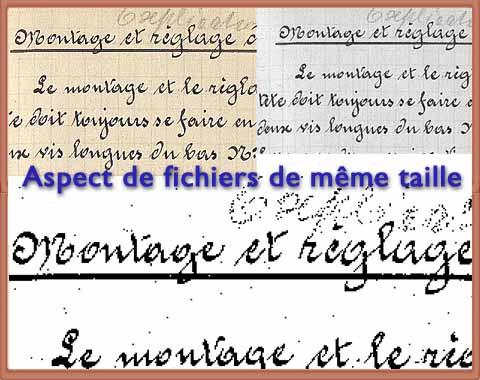 Montage et réglage
Le montage et le régla
te doit toujours se faire en
ux vis longues du bas N
Montage et réglage
Le montage et le rég
tête doit toujours se faire e
deux vis longues du bas
Aspect de fichiers de même taille
Montage et réglage
Le montage et le rég